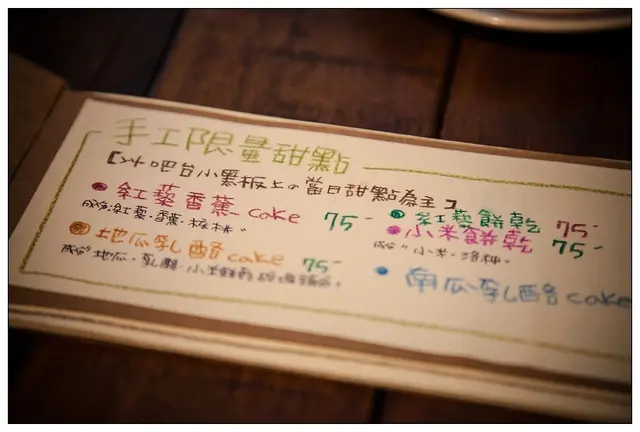 手工限量甜點
【以吧台小黑板上の當日甜點為主】
紅藜香蕉 cake 75-
成份:紅藜·香蕉·核桃
地瓜乳酪cake 75-
成份"地瓜·乳酪·小米
紅藜餅乾 75-
小米餅乾 75-
成份"小米·洛神"
南瓜乳酪cake